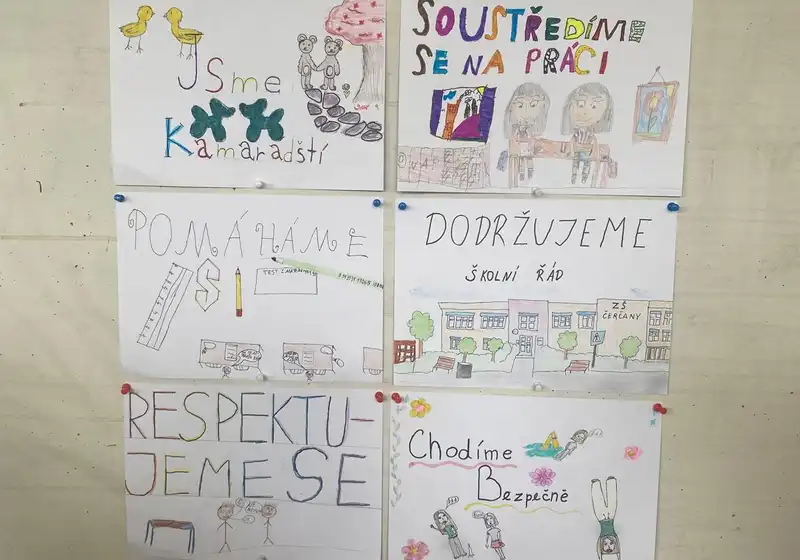 Jsme
Kamaradští
SOUSTŘEDÍME
SE NA PRÁCI
POMÁHÁME
SI
DODRŽUJEME
ŠKOLNÍ ŘÁD
ZŠ
ČERČANY
RESPEKTU-
JEME SE
Chodíme
Bezpečně